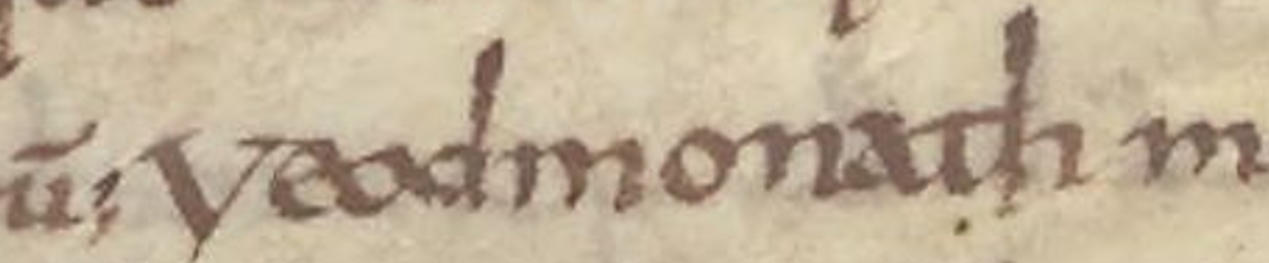 ū; Veodmonath m